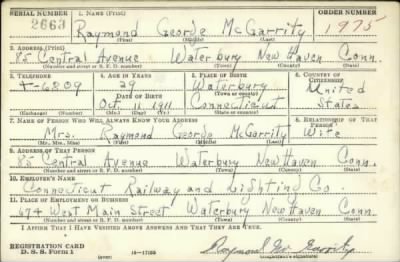 SERIAL NUMBER 1. NAME (Print) ORDER NUMBER
2663 Raymond George McGarrity 1975
(First) (Middle) (Last)
2. ADDRESS (Print)
85 Central Avenue Waterbury New Haven Conn.
(Number and street or R. F. D. number) (Town) (County) (State)
3. TELEPHONE 4. AGE IN YEARS 5. PLACE OF BIRTH 6. COUNTRY OF CITIZENSHIP
4-6809 29 Waterbury United
DATE OF BIRTH (Town or county)
Oct. 11, 1911 Connecticut States
(Exchange) (Number) (Mo.) (Day) (Yr.) (State or country)
7. NAME OF PERSON WHO WILL ALWAYS KNOW YOUR ADDRESS 8. RELATIONSHIP OF THAT PERSON
Mrs. Raymond George McGarrity Wife
(Mr., Mrs., Miss) (First) (Middle) (Last)
9. ADDRESS OF THAT PERSON
85 Central Avenue Waterbury New Haven Conn.
(Number and street or R. F. D. number) (Town) (County) (State)
10. EMPLOYER'S NAME
Connecticut Railway and Lighting Co.
11. PLACE OF EMPLOYMENT OR BUSINESS
474 West Main Street Waterbury New Haven Conn.
(Number and street or R. F. D. number) (Town) (County) (State)
I AFFIRM THAT I HAVE VERIFIED ABOVE ANSWERS AND THAT THEY ARE TRUE.
REGISTRATION CARD
D. S. S. Form 1 16-17105 Raymond McGarrity
(Registrant's signature)